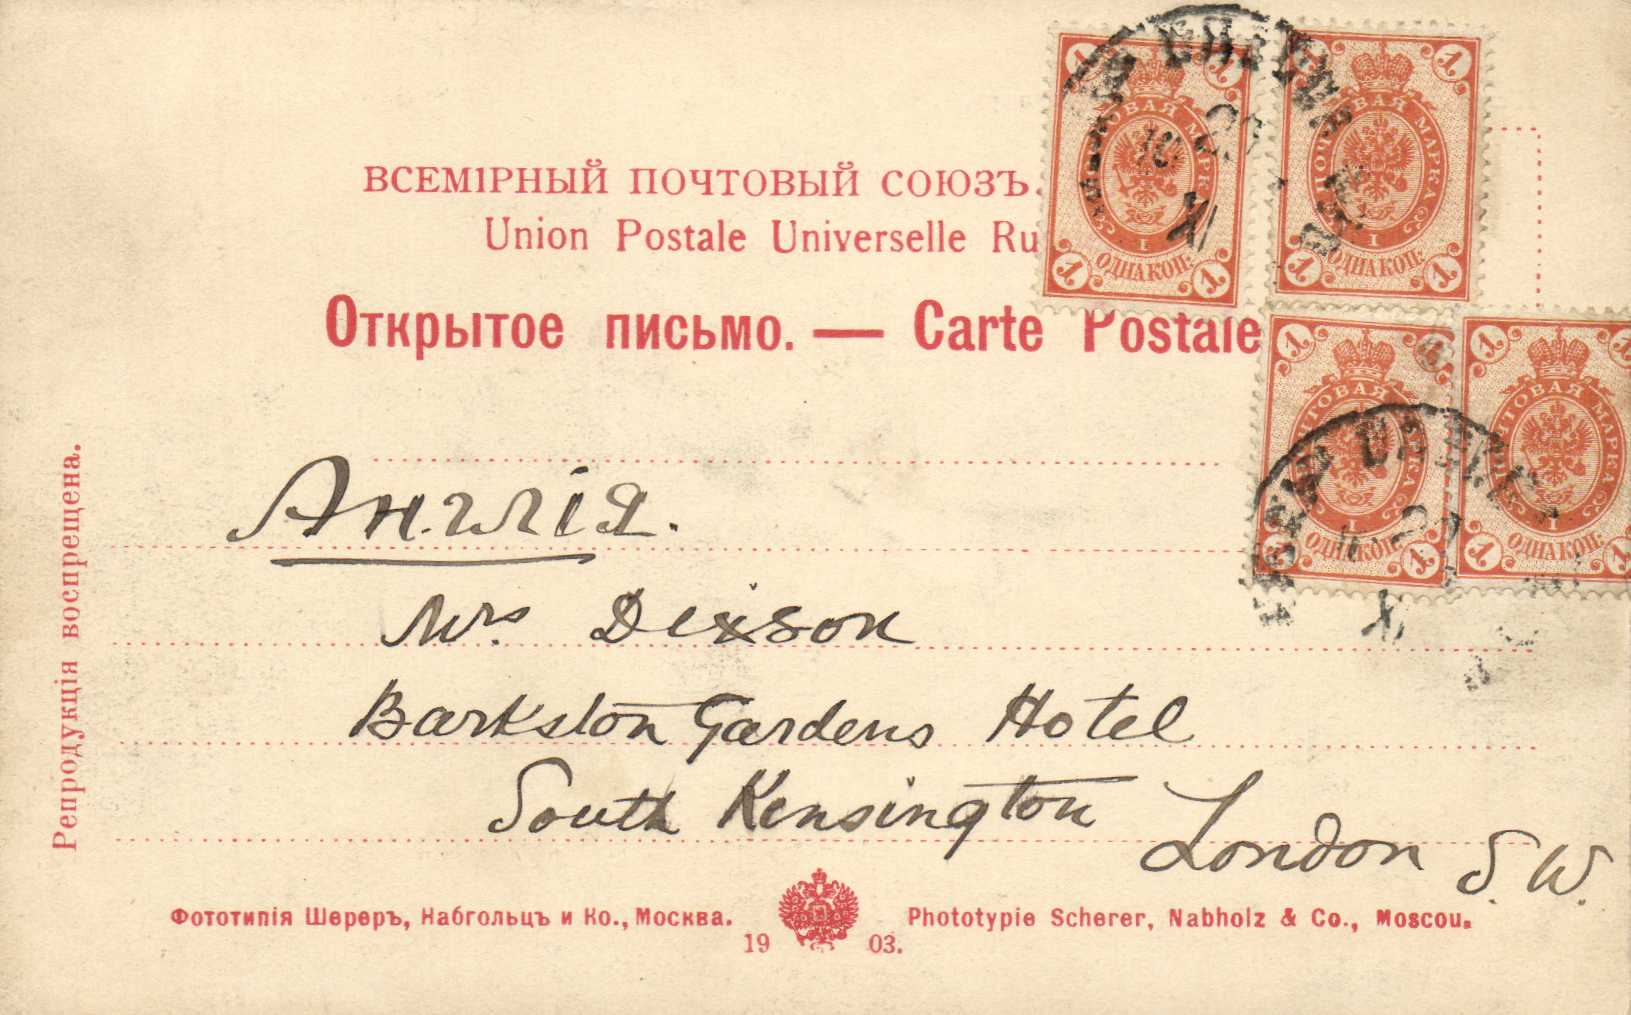 ВСЕМІРНЫЙ ПОЧТОВЫЙ СОЮЗЪ.
Union Postale Universelle Ru
Открытое письмо. — Carte Postale
1 1 ПОЧТОВАЯ МАРКА I ОДНА КОП. 1 1
1 1 ПОЧТОВАЯ МАРКА I ОДНА КОП. 1 1
1 ПОЧТОВАЯ МАРКА I ОДНА КОП. 1
1 1 ПОЧТОВАЯ МАРКА I ОДНА КОП. 1 1
Англія.
Mrs. Dixson
Barkston Gardens Hotel
South Kensington
London S.W.
Репродукція воспрещена.
Фототипія Шереръ, Набгольцъ и Ко., Москва.
1903.
Phototypie Scherer, Nabholz & Co., Moscou.